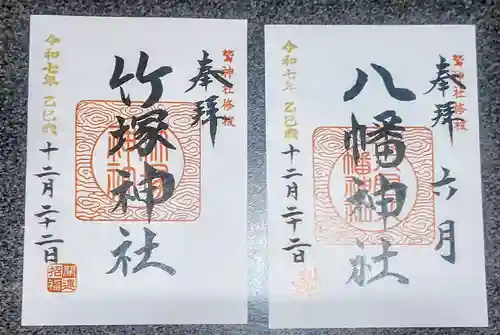 鷲神社修復
奉拝
竹塚神社
令和七年 乙巳歳
十二月二十二日
開運
招福
鷲神社修復
奉拝 六月
八幡神社
令和七年 乙巳歳
十二月二十二日